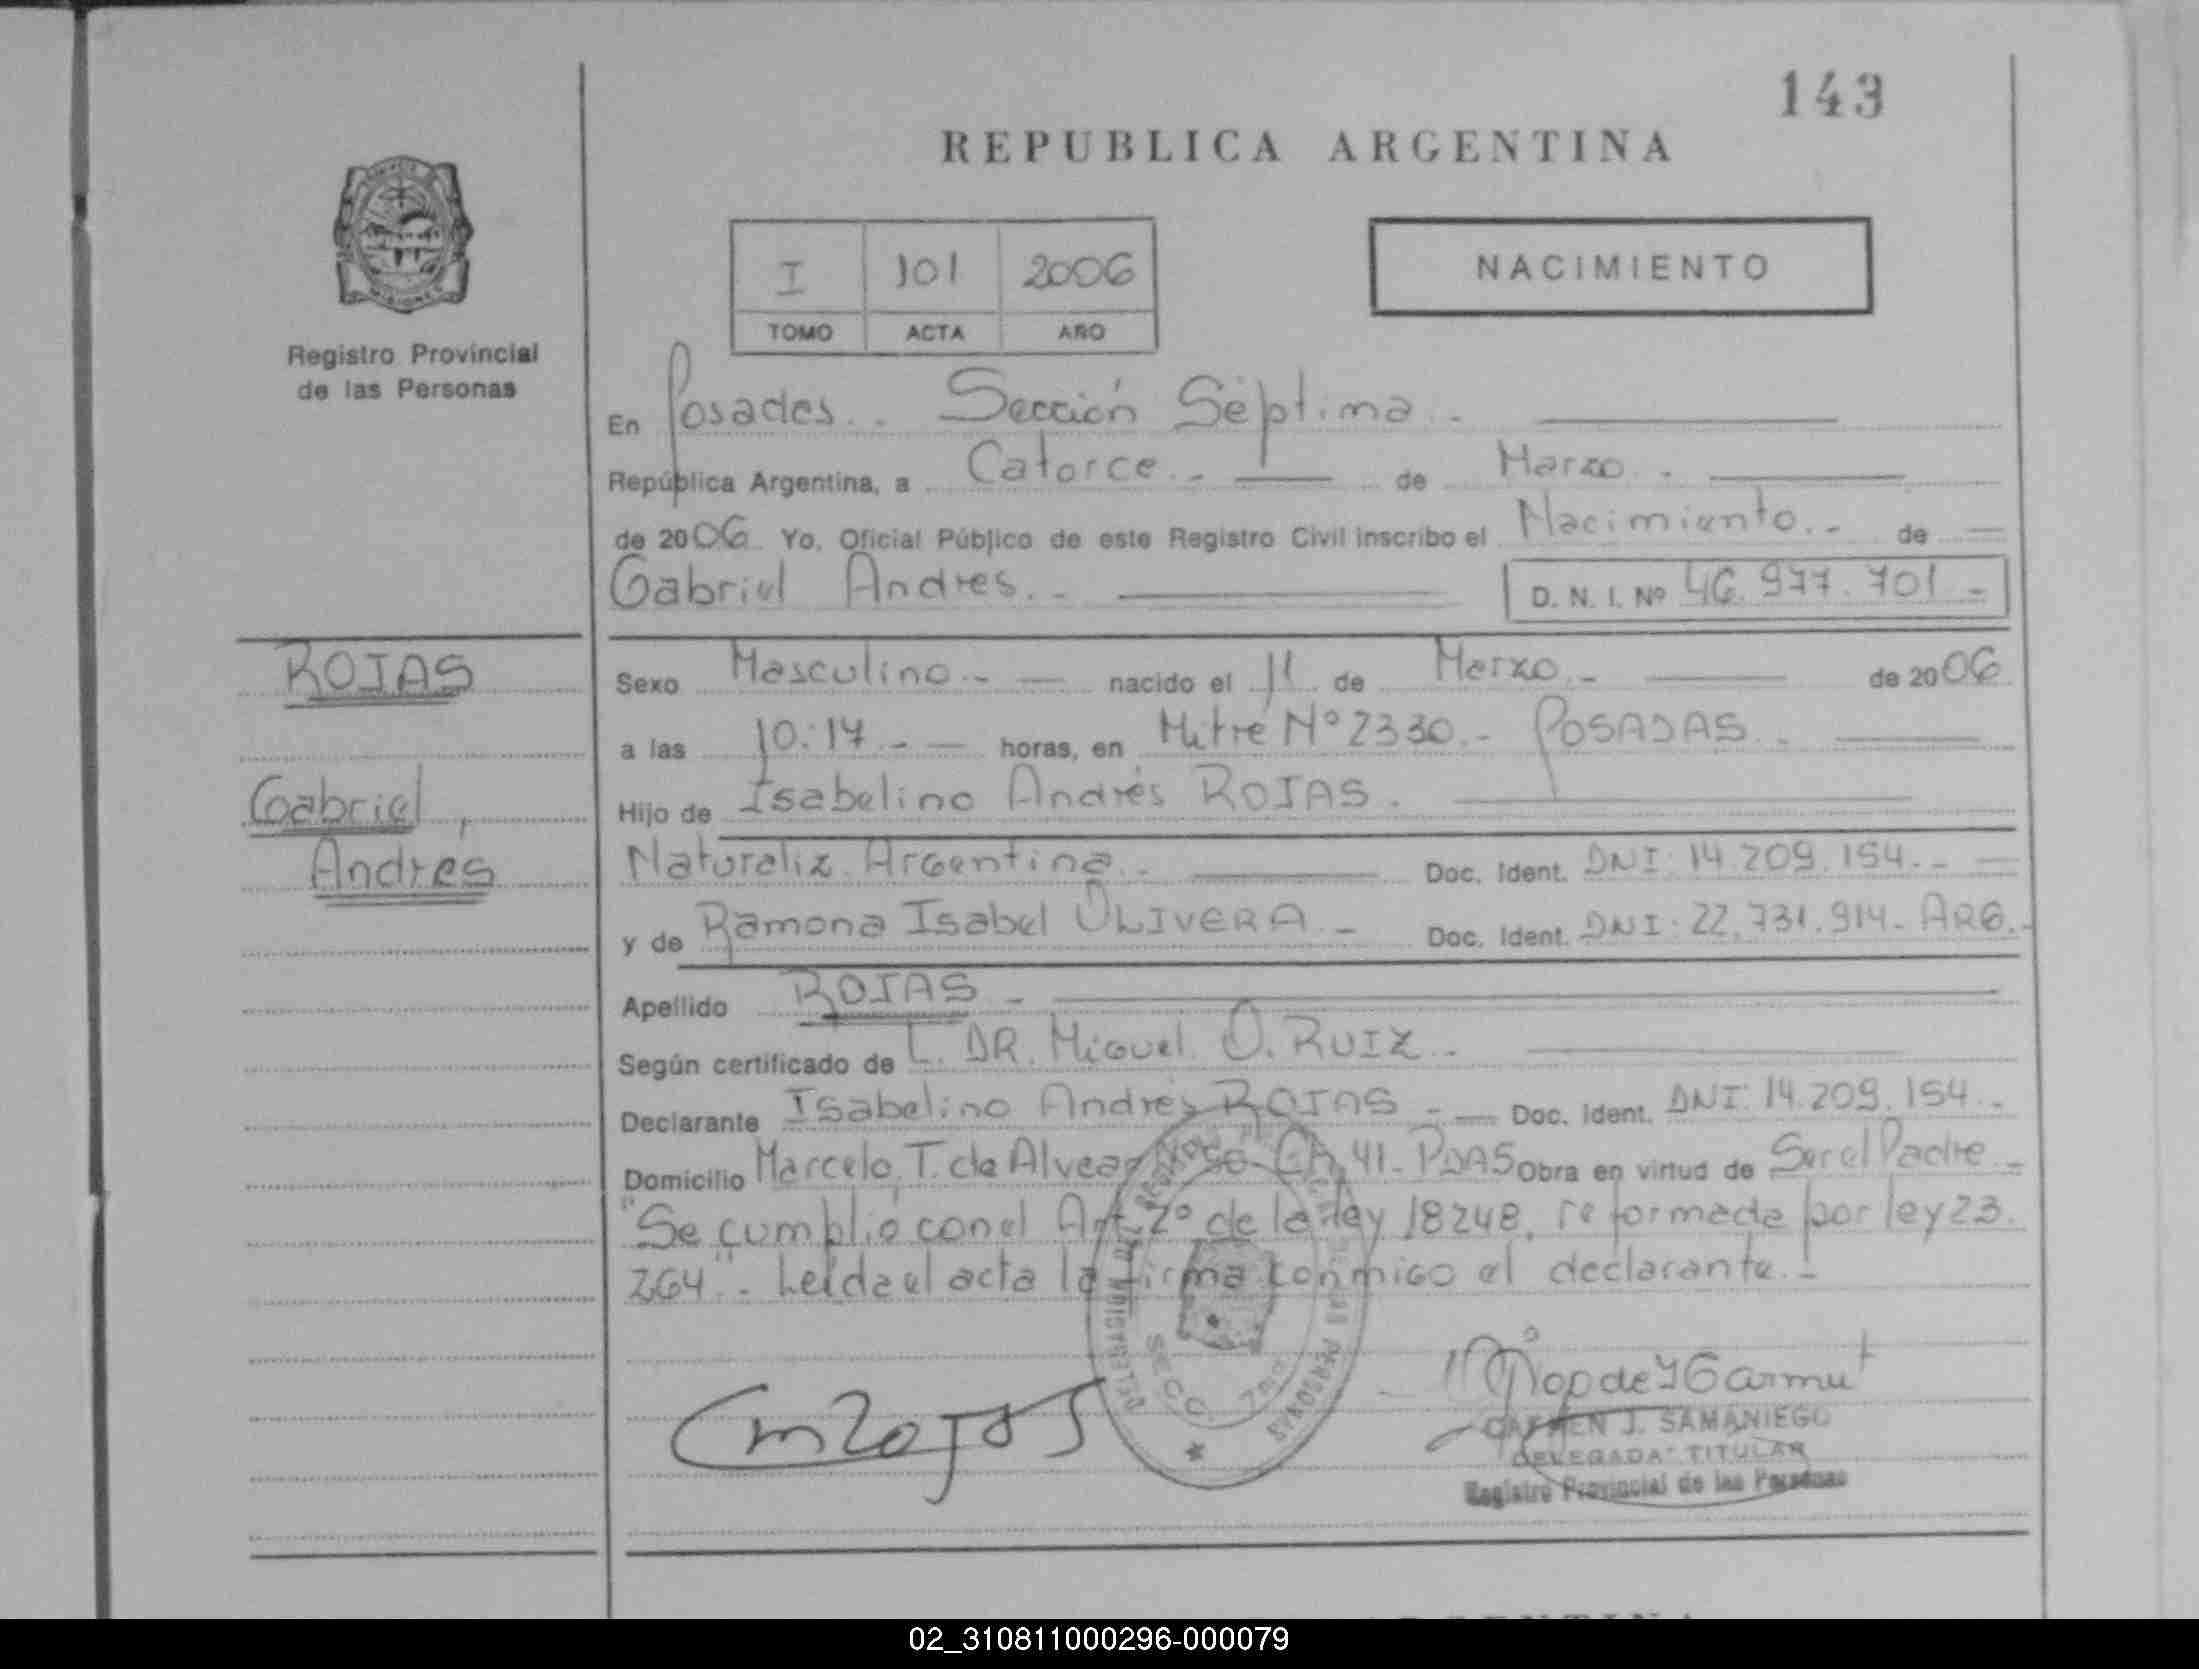 143
REPUBLICA ARGENTINA
I 101 2006
TOMO ACTA AÑO
NACIMIENTO
Registro Provincial
de las Personas
En Posadas.- Sección Séptima.-
República Argentina, a Catorce.- de Marzo.-
de 2006 Yo, Oficial Público de este Registro Civil inscribo el Nacimiento.- de
Gabriel Andres.- D. N. I. Nº 46.977.701.-
ROJAS
Sexo Masculino.- nacido el 11 de Marzo.- de 2006
a las 10:14.- horas, en Mitre Nº 2330.- POSADAS.-
Gabriel,
Hijo de Isabelino Andrés ROJAS.
Andres
Naturaliz. Argentina.- Doc. Ident. DNI: 14.209.154.-
y de Ramona Isabel OLIVERA.- Doc. Ident. DNI: 22.731.914.- ARG.-
Apellido ROJAS.-
Según certificado de L. DR. Miguel O. RUIZ.-
Declarante Isabelino Andrés ROJAS.- Doc. Ident. DNI: 14.209.154.-
Domicilio Marcelo T. de Alvear 41.- PDAS Obra en virtud de Ser el Padre.-
"Se cumplió con el Art. 2º de la ley 18248, reformada por ley 23.
264".- Leída el acta la firma conmigo el declarante.-
SECC. 7ma
CARMEN J. SAMANIEGO
DELEGADA TITULAR
Registro Provincial de las Personas
02_310811000296-000079